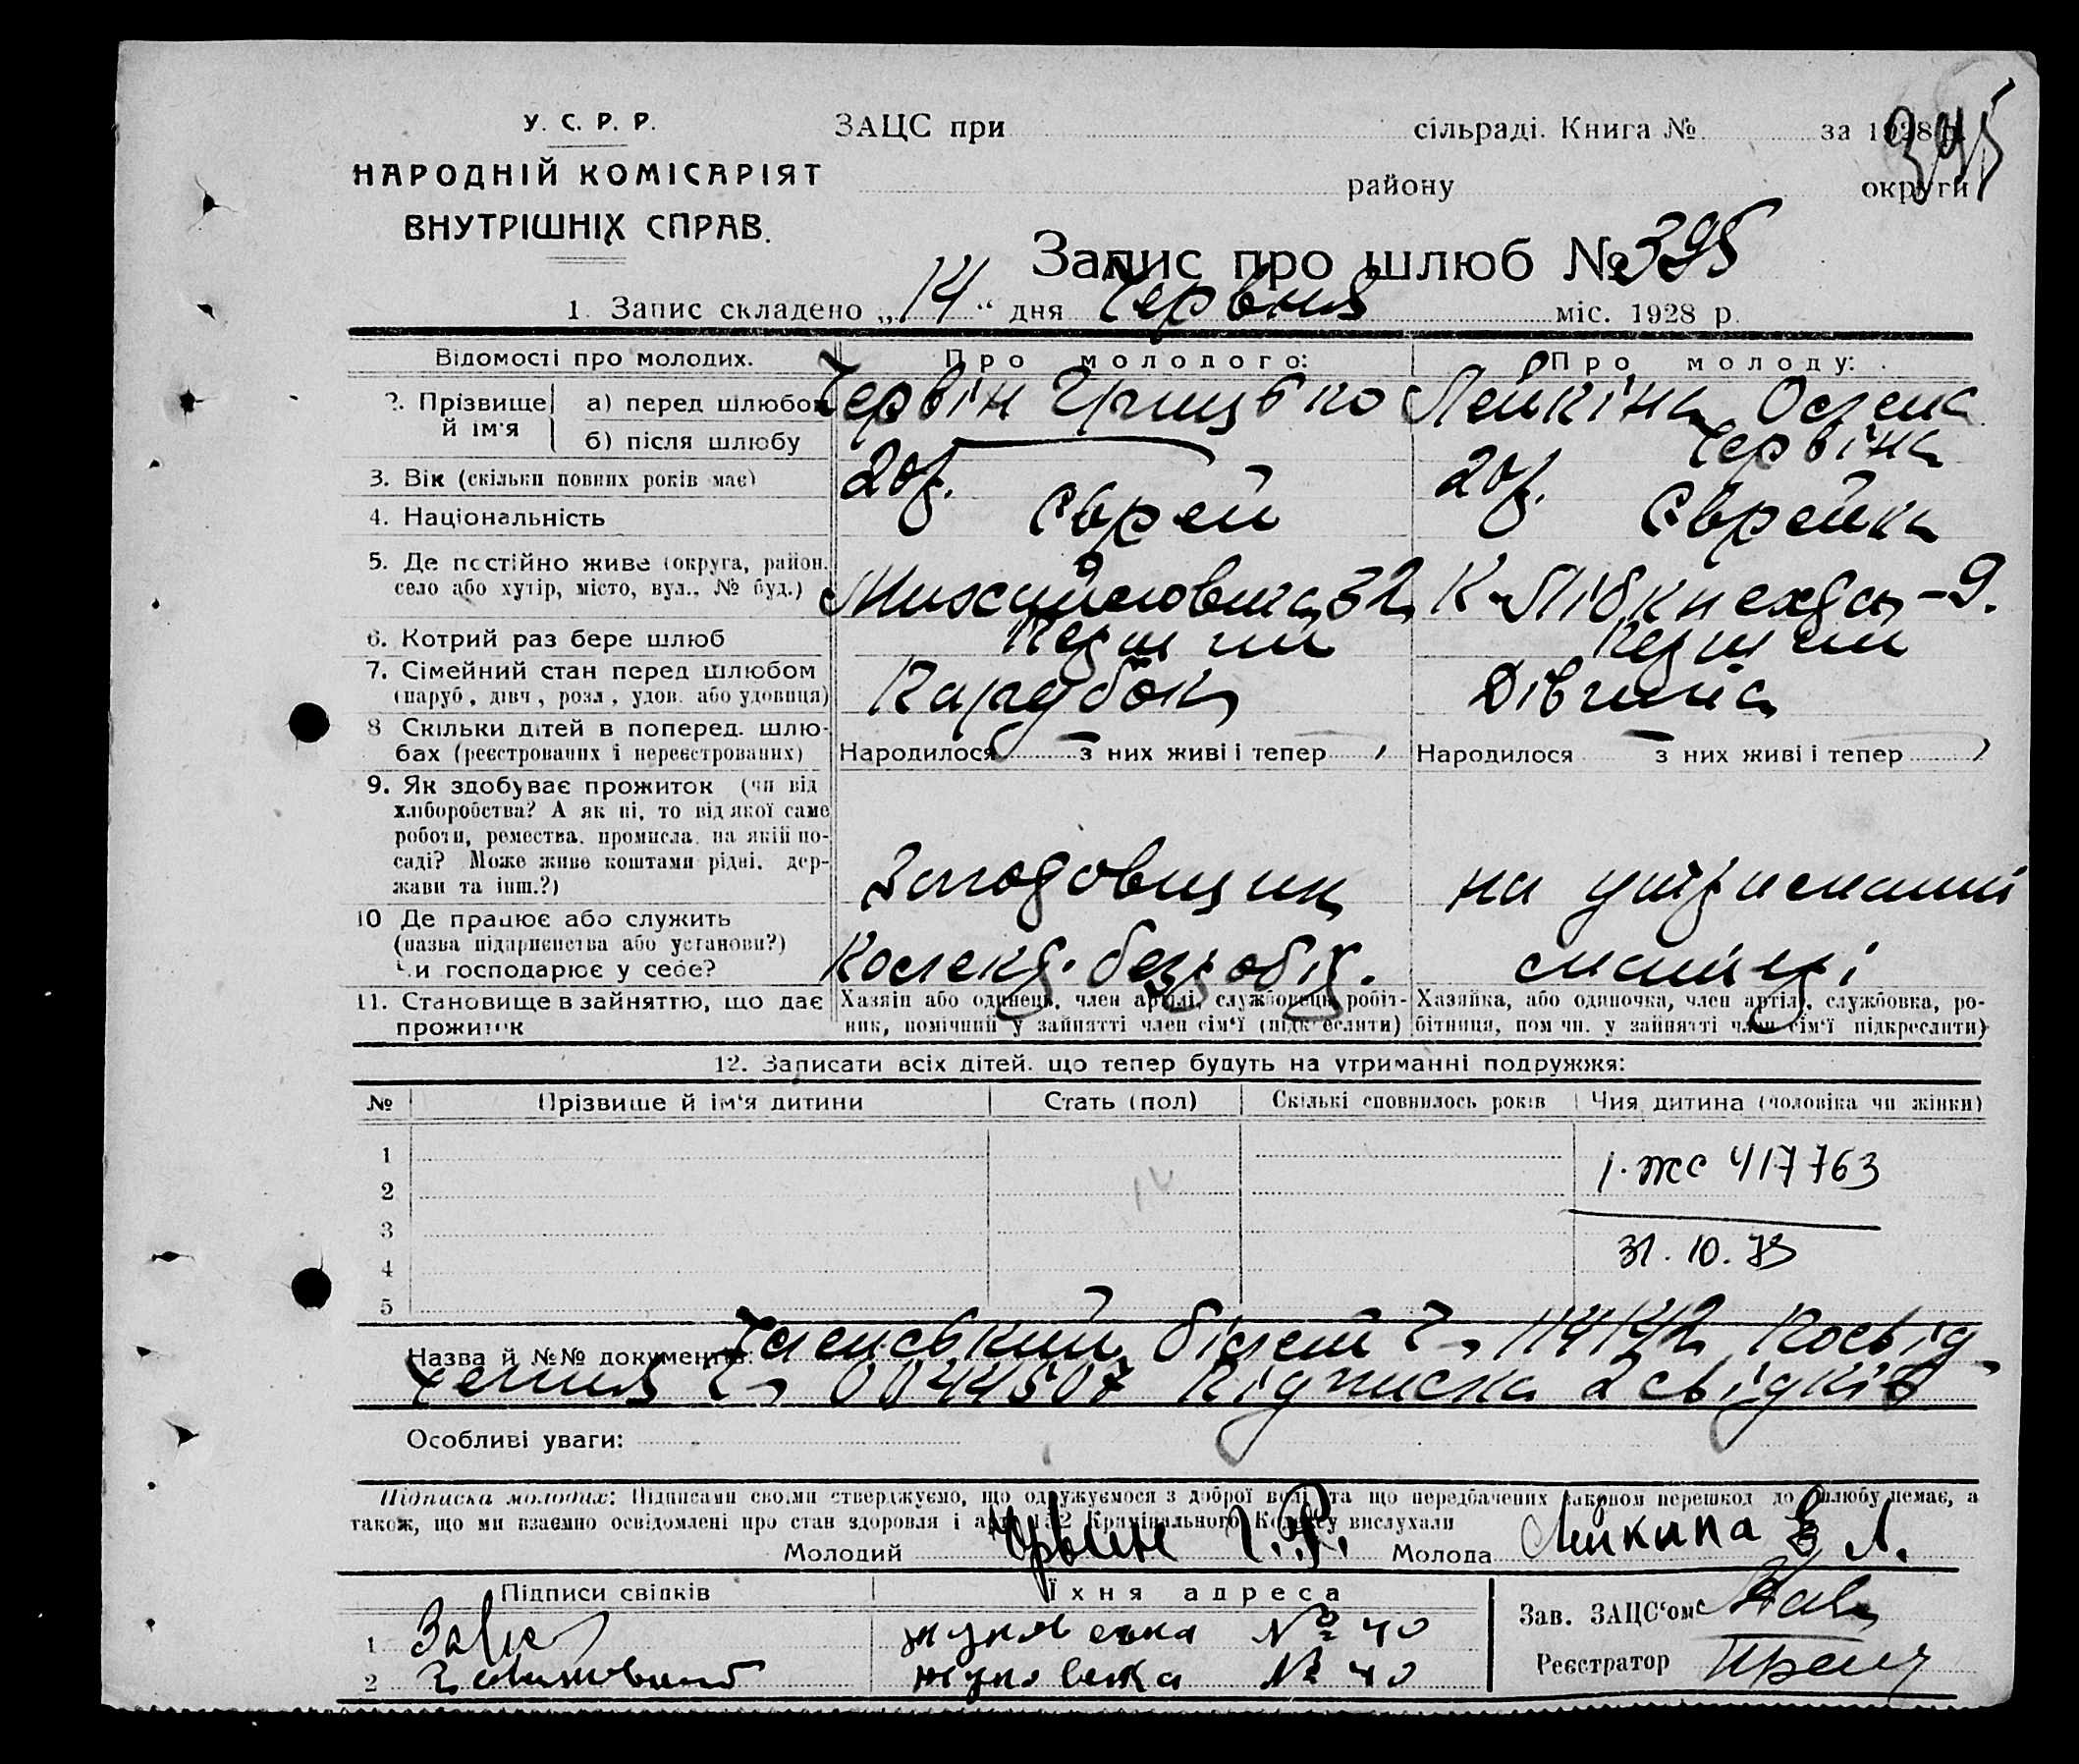 395
У. С. Р. Р.
НАРОДНІЙ КОМІСАРІЯТ
ВНУТРІШНІХ СПРАВ.
ЗАЦС при сільраді. Книга № за 1928 р.
району округи
Запис про шлюб № 395
1. Запис складено „14“ дня Червня міс. 1928 р.
Відомості про молодих. Про молодого: Про молоду:
2. Прізвище й ім'я а) перед шлюбом Червін Грицько Лейкіна
б) після шлюбу Червіна
3. Вік (скільки повних років має) 20 р. 20 р.
4. Національність Єврей Єврейка
5. Де постійно живе (округа, район, село або хутір, місто, вул., № буд.) Михайловська 32 К-Лібкнехта – 9.
6. Котрий раз бере шлюб Перший Перший
7. Сімейний стан перед шлюбом (паруб, дівч, розл, удов. або удовиця) Парубок Дівчина
8 Скільки дітей в поперед. шлюбах (реєстрованих і нереєстрованих) Народилося — з них живі і тепер Народилося — з них живі і тепер
9. Як здобуває прожиток (чи від
хліборобства? А як ні, то від якої саме
роботи, ремества, промисла, на якій по-
саді? Може живе коштами рідні, дер-
жави та інш.?) на
10 Де працює або служить
(назва підприєнства або установи?)
Чи господарює у себе? Колект. безробіт.
11. Становище в зайняттю, що дає прожиток
Хазяїн або одинець, член артілі, службовець, робіт-
ник, помічний у зайнятті член сім'ї (підкреслити)
Хазяйка, або одиночка, член артілі, службовка, ро-
бітниця, пом чн. у зайнятті член сім'ї підкреслити)
12. Записати всіх дітей, що тепер будуть на утриманні подружжя:
№ Прізвише й ім'я дитини Стать (пол) Скількі сповнилось років Чия дитина (чоловіка чи жінки)
1
2
3
4
5
І-ЖС 417763
31.10.73
Назва й №№ документів: Членський білет Ч. 114142 Посвід-
чення Ч. 0044507 Підписка 2 свідків
Особливі уваги:
Підписка молодих: Підписами своїми стверджуємо, що одружуємося з доброї волі, та що передбачених законом перешкод до шлюбу немає, а
також, що ми взаємно освідомлені про стан здоровля і арт. 152 Крамінального Кодексу вислухали
Молодий Молода Лейкина Е. Л.
Підписи свідків Їхня адреса
1 № 40
2 № 40
Зав. ЗАЦС'ом
Реєстратор